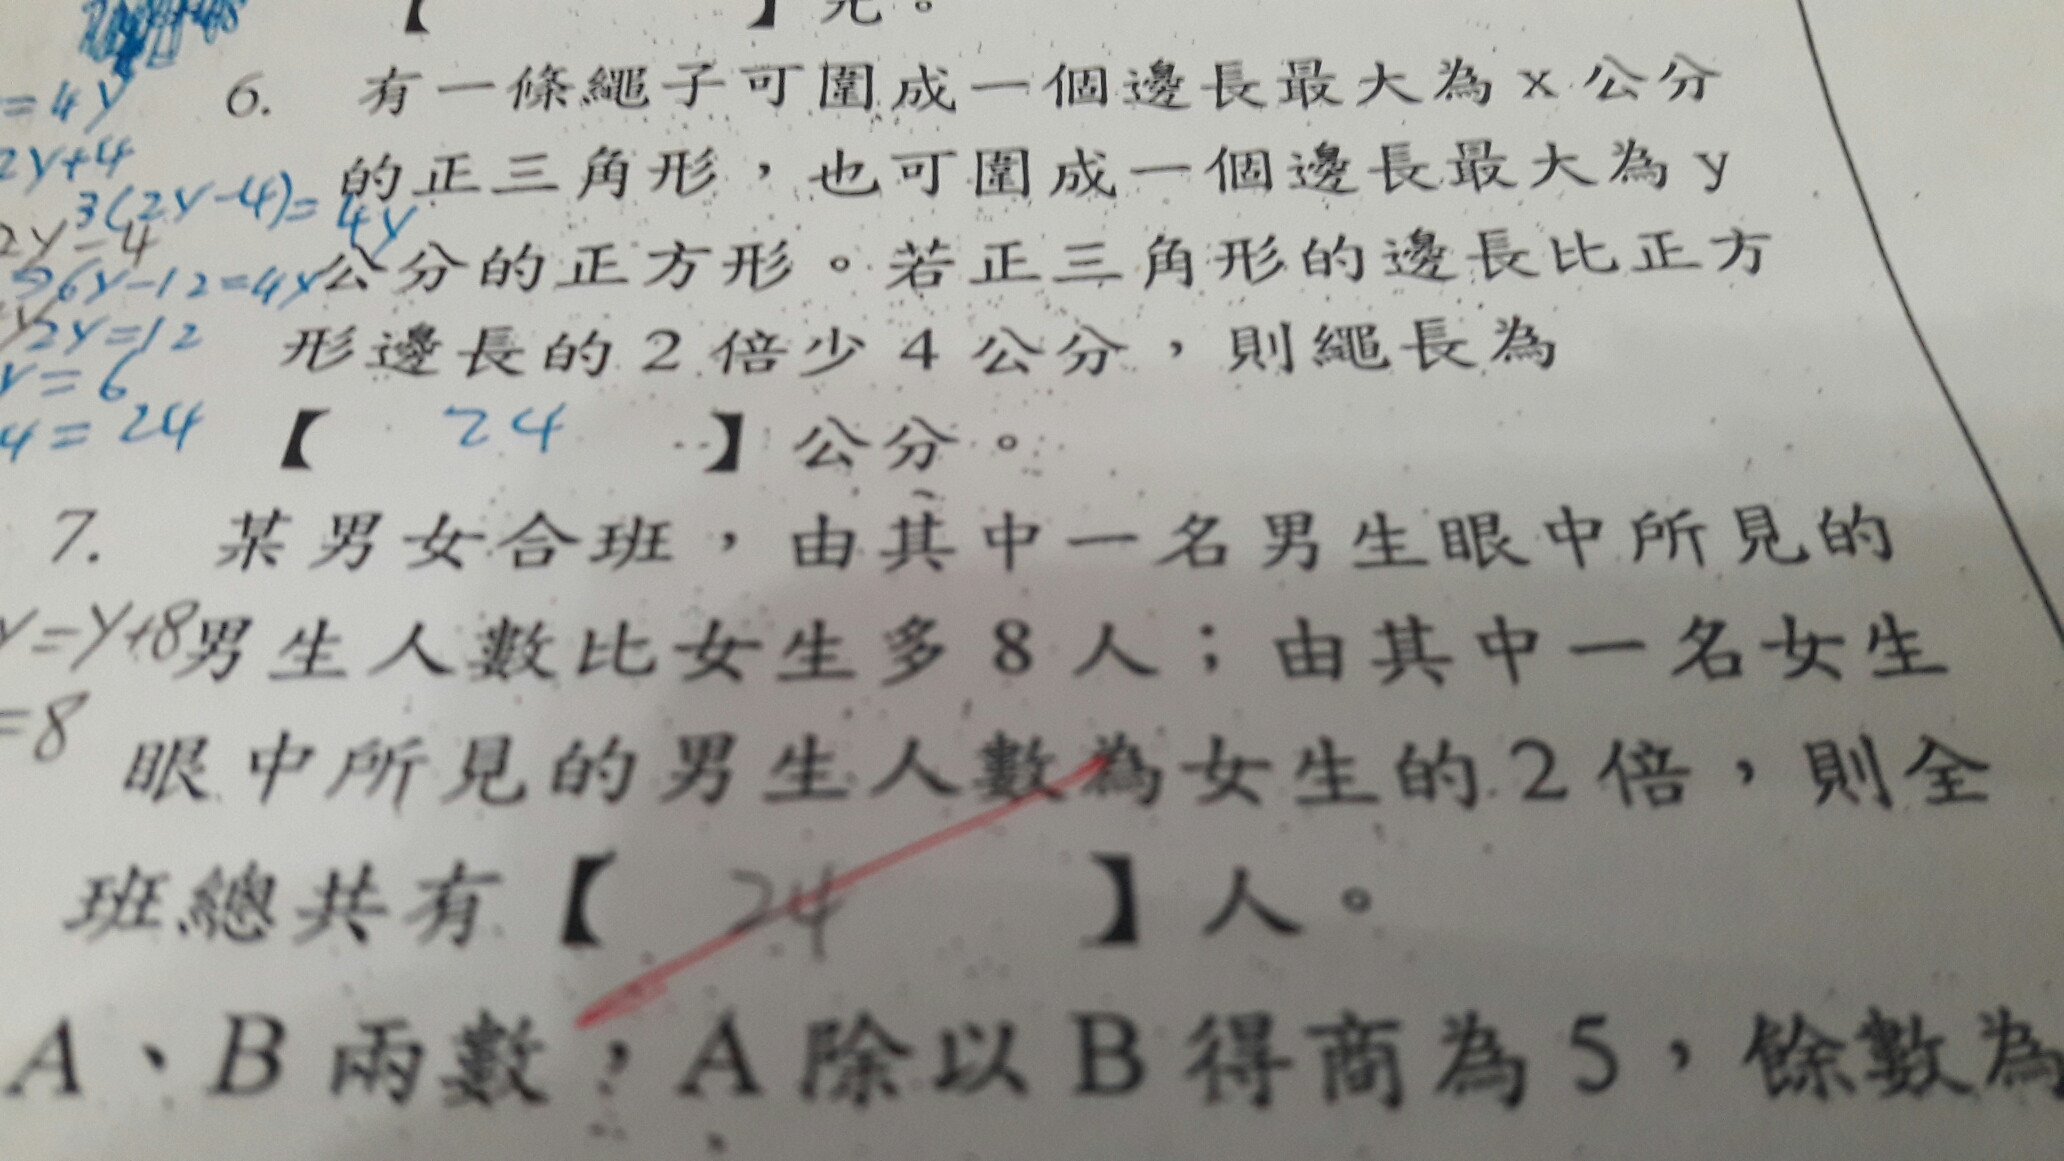 【 】元。
=4y
6. 有一條繩子可圍成一個邊長最大為 x 公分
2y+4
的正三角形，也可圍成一個邊長最大為 y
3(2y-4)=4y
2y-4
公分的正方形。若正三角形的邊長比正方
6y-12=4y
2y=12
形邊長的 2 倍少 4 公分，則繩長為
y=6
4=24
【 24 】公分。
7. 某男女合班，由其中一名男生眼中所見的
y=y+8
男生人數比女生多 8 人；由其中一名女生
=8
眼中所見的男生人數為女生的 2 倍，則全
班總共有【 24 】人。
A、B 兩數，A 除以 B 得商為 5，餘數為